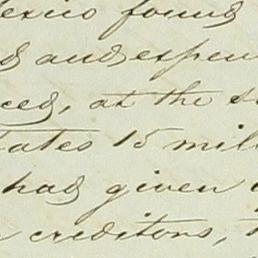 exico found
and expen
ced, at the s
tates 15 mill
had given
creditors,